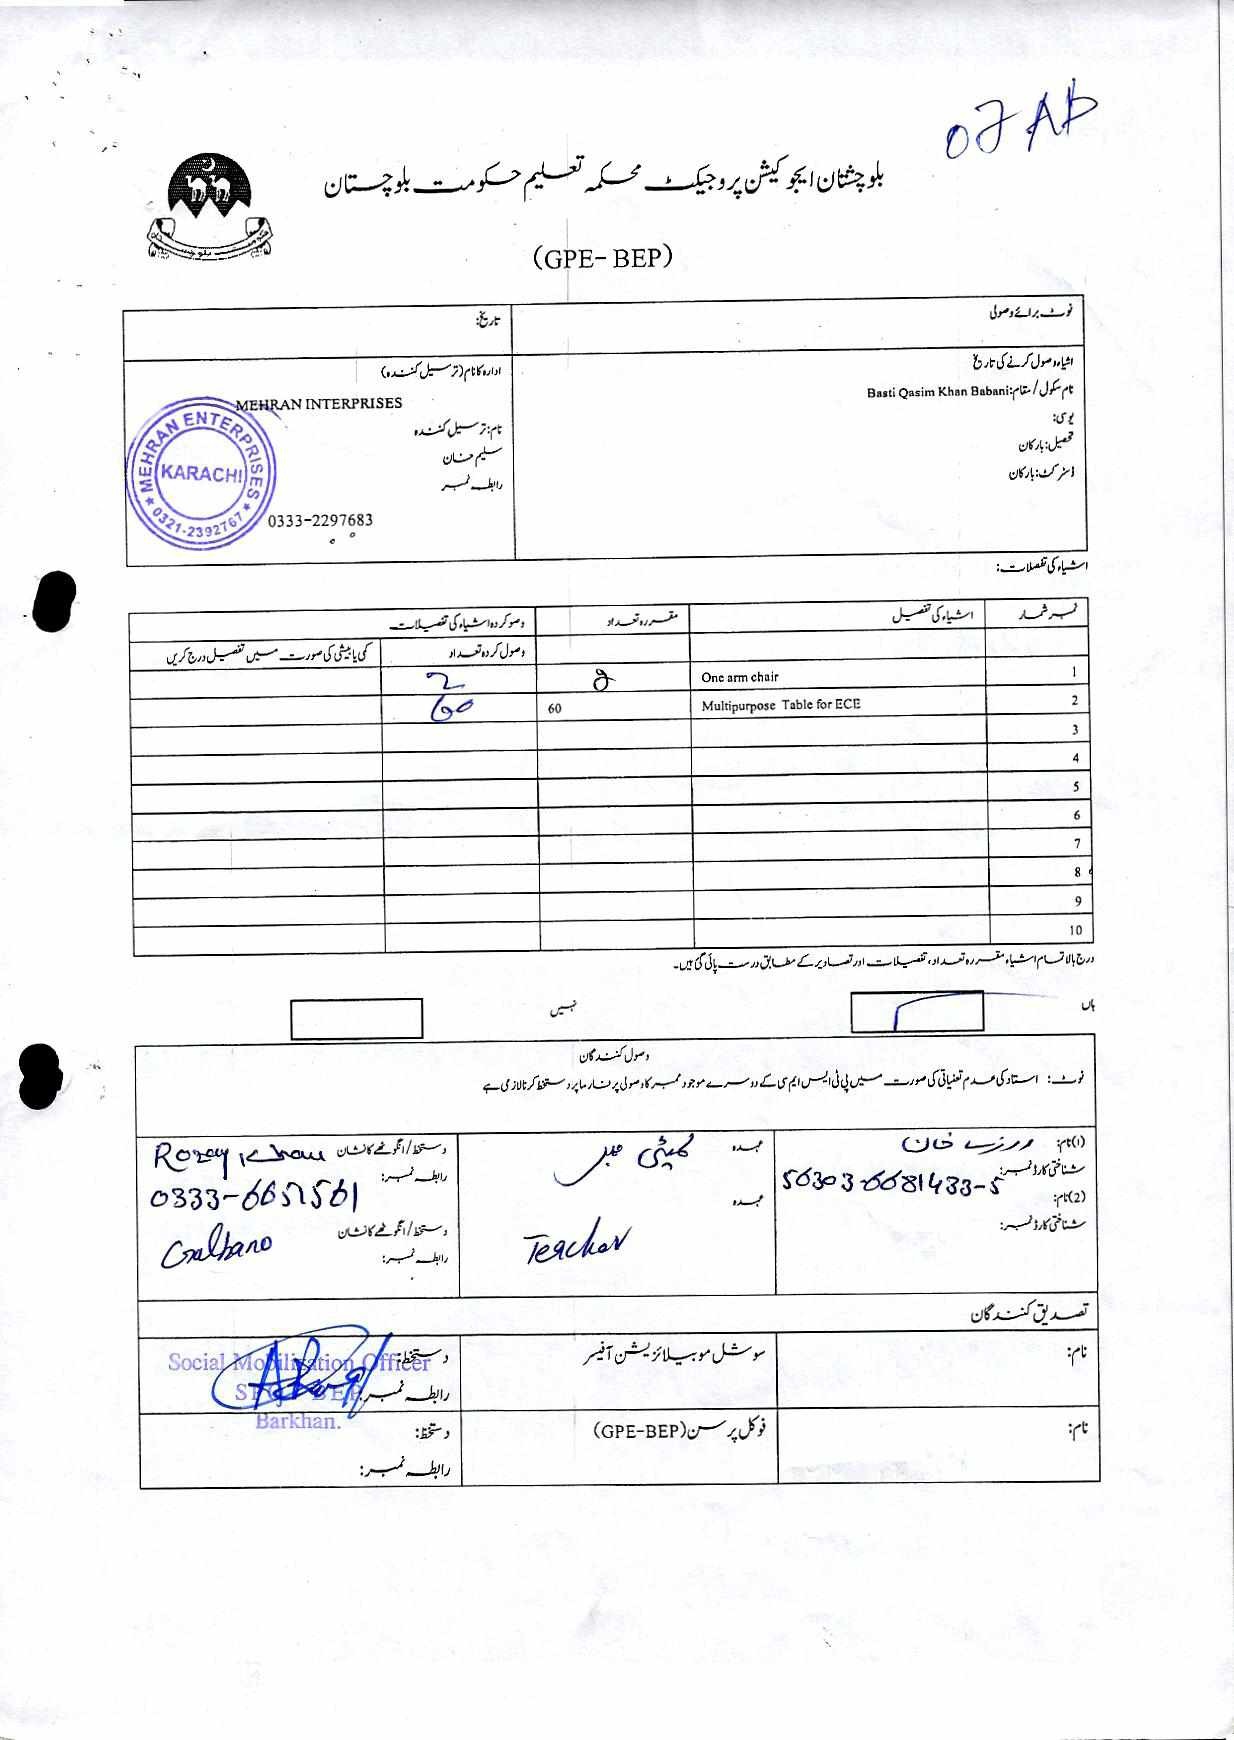 07 AD
بلوچستان ایجوکیشن پروجیکٹ محکمہ تعلیم حکومت بلوچستان
(GPE- BEP)
نوٹ برائے وصولی
تاریخ:
اشیاء وصول کرنے کی تاریخ
نام سکول / مقام: Basti Qasim Khan Babani
یو سی:
تحصیل: بارکان
ڈسٹرکٹ: بارکان
ادارہ کا نام (ترسیل کنندہ)
MEHRAN INTERPRISES
نام: ترسیل کنندہ
سلیم خان
رابطہ نمبر
0333-2297683
MEHRAN ENTERPRISES
KARACHI
0321-2392767
اشیاء کی تفصلات:
نمبر شمار اشیاء کی تفصیل مقررہ تعداد وصو کردہ اشیاء کی تفصیلات
وصول کردہ تعداد کمی یا بیشی کی صورت میں تفصیل درج کریں
1 One arm chair 2 2
2 Multipurpose Table for ECE 60 60
3
4
5
6
7
8
9
10
درج بالا تمام اشیاء مقررہ تعداد، تفصیلات اور تصاویر کے مطابق درست پائی گئی ہیں۔
ہاں
نہیں
وصول کنندگان
نوٹ: استاد کی عدم تعنیاتی کی صورت میں پی ٹی ایس ایم سی کے دوسرے موجود ممبر کا وصولی پر فارما پر دستخط کرنا لازمی ہے
(1) نام: خان
شناختی کارڈ نمبر: 56303-6681433-5
(2) نام:
شناختی کارڈ نمبر:
عہدہ کمیٹی ممبر
عہدہ
Teacher
دستخط / انگوٹھے کا نشان Rozay Khan
رابطہ نمبر: 0333-6651561
دستخط / انگوٹھے کا نشان
رابطہ نمبر:
تصدیق کنندگان
نام:
سوشل موبیلائزیشن آفیسر
دستخط:
رابطہ نمبر:
Social Mobilisation Officer
BEP
Barkhan.
نام:
فوکل پرسن (GPE-BEP)
دستخط:
رابطہ نمبر: